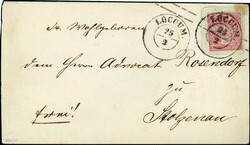 LOCCUM.
25
2
LOCCUM.
25
2
Sr Wohlgeboren
dem Herrn Advocat Rosendorf
zu
frei!
Stolzenau